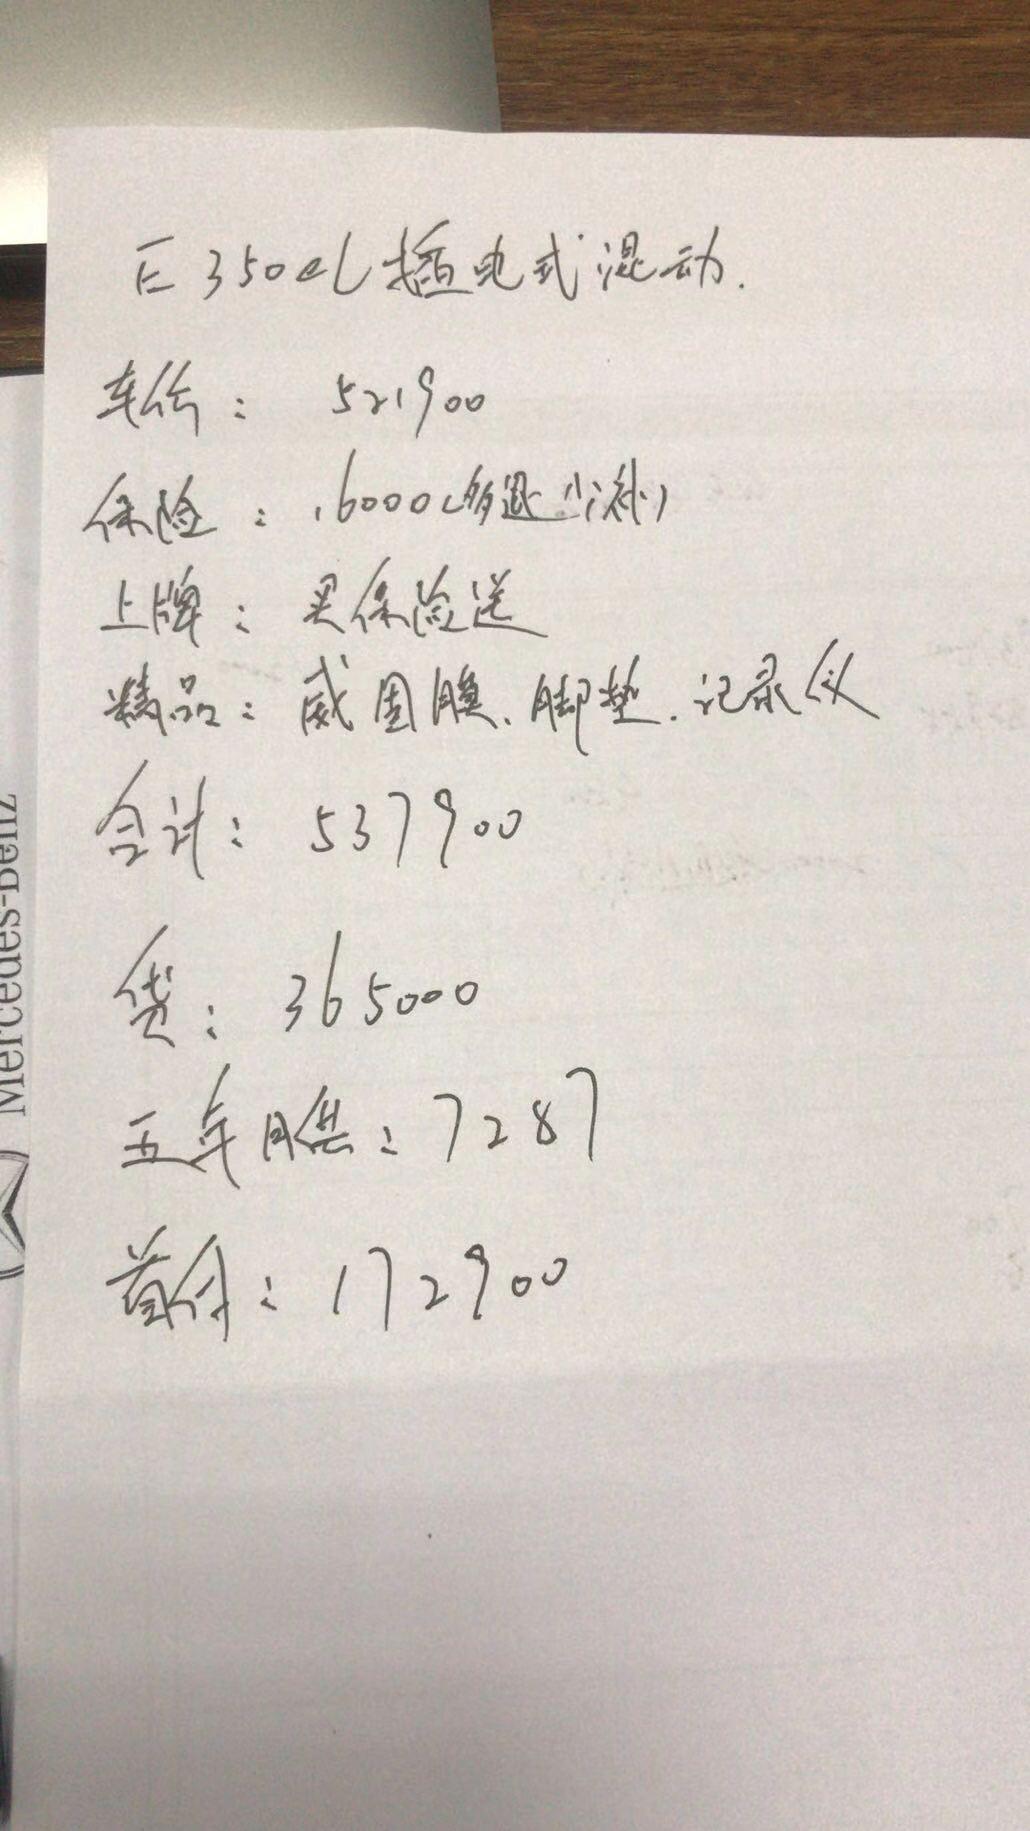 E350eL插电式混动.
车价： 521900
保险：16000(多退少补)
上牌：买保险送
精品：威固膜、脚垫.记录仪
合计： 537900
贷：365000
五年月供：7287
首付：172900
Mercedes-Benz